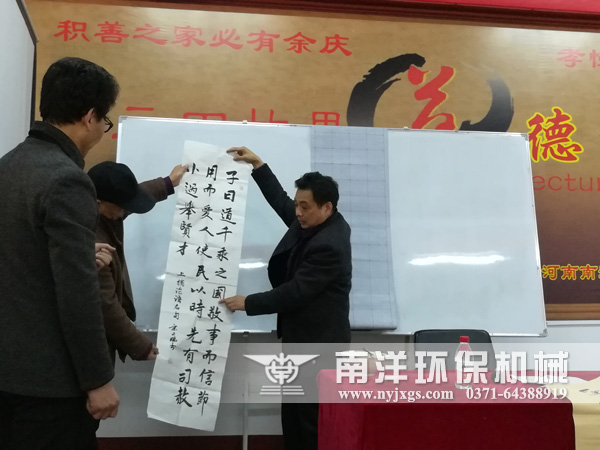 积善之家必有余庆
孝
德
ectur
河南南
子曰道千乘之國敬事而信節
用而愛人使民以時先有司赦
小過舉賢才
南洋环保机械
www.nyjxgs.com 0371-64388919